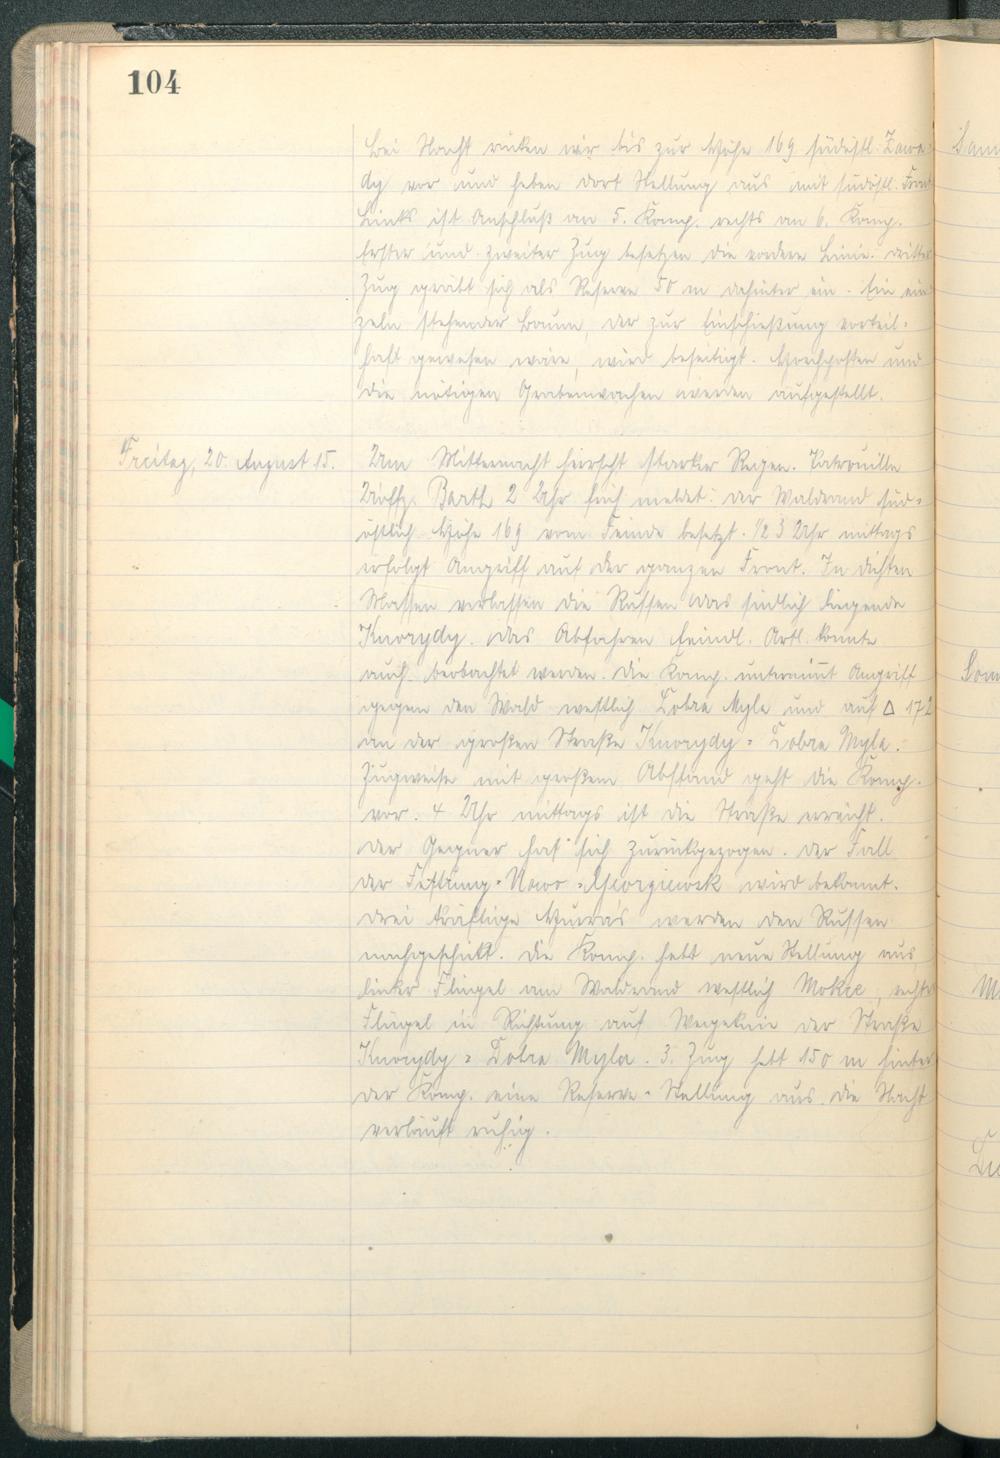 104
Bei Nacht rücken wir bis zur Höhe 169 südöstl. Zawa-
dy vor und heben dort Stellung aus mit südöstl. Front
Links ist Anschluß an 5. Komp. rechts an 6. Komp.
Erster und zweiter Zug besetzen die vordere Linie. dritter
Zug gräbt sich als Reserve 50 m dahinter ein. Ein ein
zeln stehender Baum, der zur Einschießung vorteil-
haft gewesen wäre, wird beseitigt. Horchposten und
die nötigen Grabenwachen werden aufgestellt.
Freitag, 20. August 15.
Um Mitternacht herrscht starker Regen. Patrouille
Uoffz. Barth 2 Uhr früh meldet: der Waldrand süd-
östlich Höhe 169 vom Feinde besetzt. 1/2 3 Uhr mittags
erfolgt Angriff auf der ganzen Front. In dichten
Massen verlassen die Russen das südlich liegende
Knorydy. Das Abfahren feindl. Artl. konnte
auch beobachtet werden. Die Komp. unternim̅t Angriff
gegen den Wald westlich Dobra Myla und auf △ 172
an der großen Straße Knorydy - Dobra Myla.
Zugweise mit großem Abstand geht die Komp.
vor. 4 Uhr mittags ist die Straße erreicht.
Der Gegner hat sich zurückgezogen. Der Fall
der Festung Nowo-Georgiewsk wird bekannt.
Drei kräftige Hurra's werden den Russen
nachgeschickt. Die Komp. hebt neue Stellung aus
linker Flügel am Waldrand westlich Mokre, rechter
Flügel in Richtung auf Wegeknie der Straße
Knorydy - Dobra Myla. 3. Zug hebt 150 m hinter
der Komp. eine Reserve-Stellung aus. Die Nacht
verläuft ruhig.